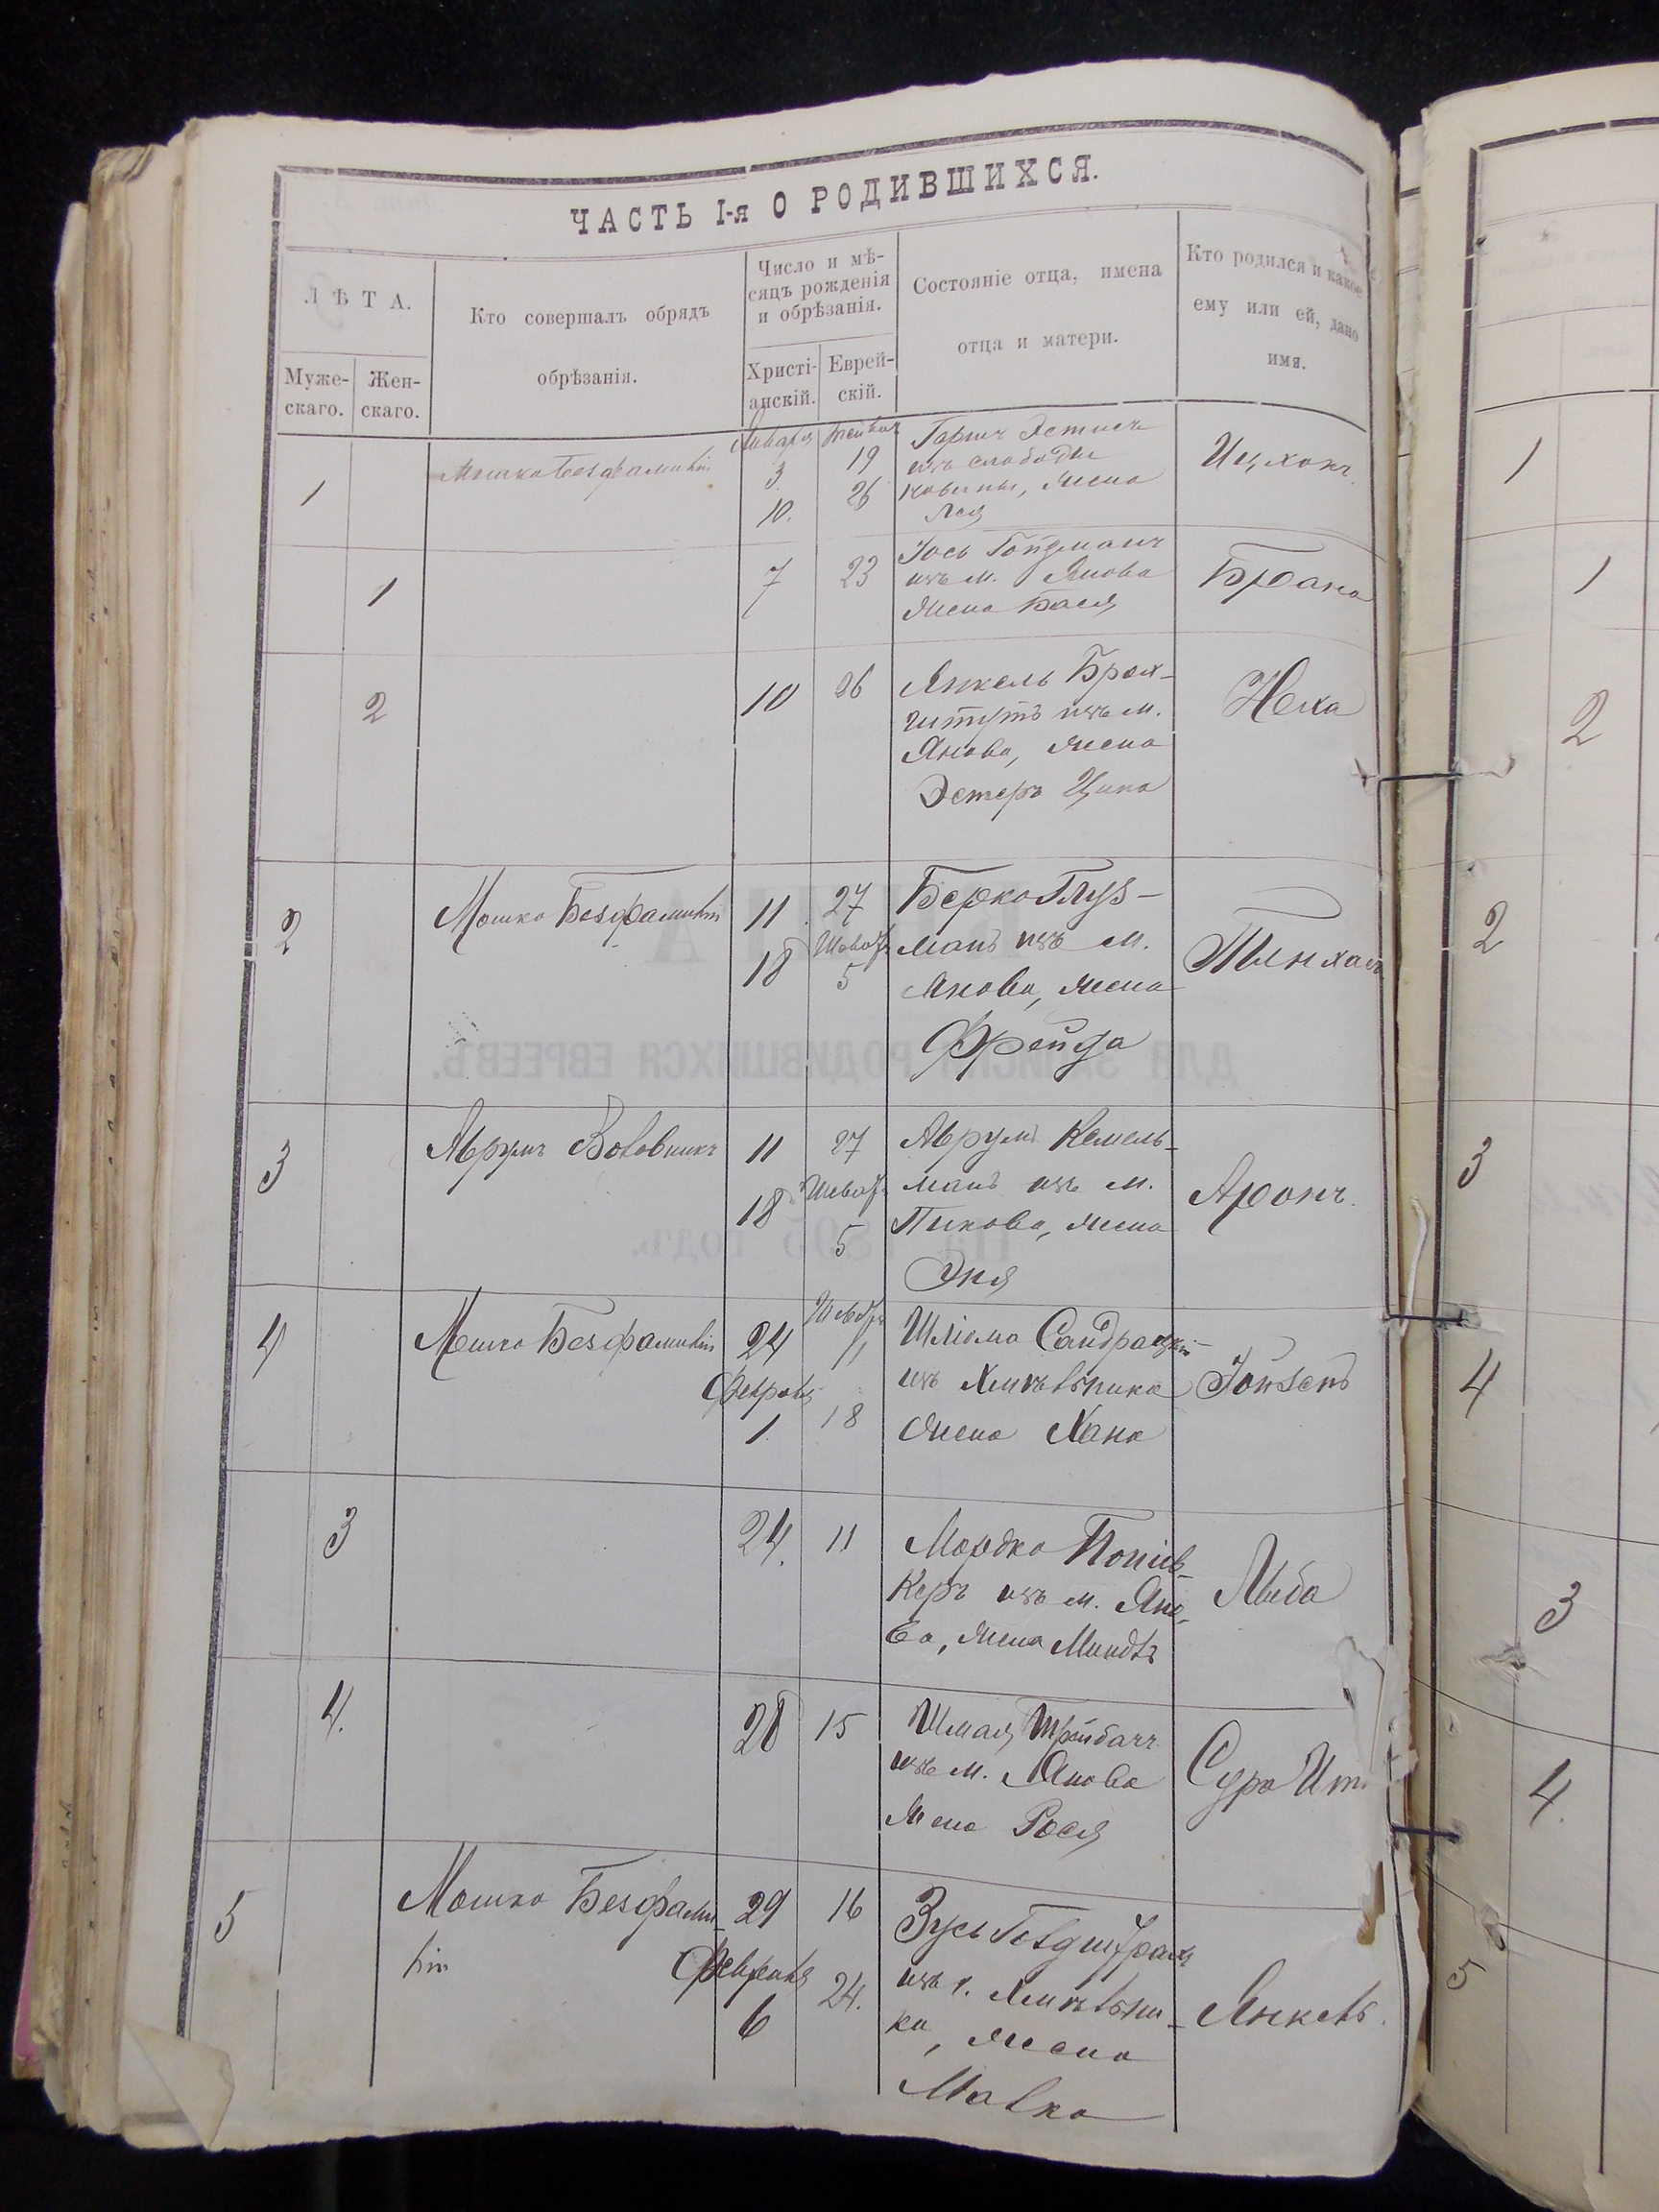 ЧАСТЬ I-я О РОДИВШИХСЯ.
ЛѢТА.
Муже-
скаго.
Жен-
скаго.
Кто совершалъ обрядъ
обрѣзанія.
Число и мѣ-
сяцъ рожденія
и обрѣзанія.
Христі-
анскій.
Еврей-
скій.
Состояніе отца, имена
отца и матери.
Кто родился и какое
ему или ей, дано
имя.
1
Мошко Безфамилій
Января
3
10.
19
26
изъ слободы
жена
Лея
Ицхокъ.
1
7
23
Іось Гойдманъ
изъ м. Янова
жена Бася
Брана
2
10
26
Янкель Брох-
изъ м.
Янова, жена
Эстеръ Ципа
Неха
2
Мошко Безфамилій
11
18
27
Шеватъ
5
Берко Глуз-
манъ изъ м.
Янова, жена
Фрейда
Пинхасъ
3
Аврумъ Воловникъ
11
18
27
Шеватъ
5
Аврумъ Кемель-
манъ изъ м.
Пикова, жена
Эня
Аронъ.
4
Мошко Безфамилій
24
Февраля
1.
Шеватъ
11
18
Шліома Сандрацкій
изъ Хмѣльника
жена Хана
Іойзепъ
3
24.
11
Мордко
керъ изъ м. Яно-
ва, жена Миндль
Либа
4.
28
15
Шмая
изъ м. Янова
жена Рося
Сура
5
Мошко Безфами-
лій
29
Февраля
6
16
24.
Зусь
изъ г. Хмѣльни-
ка, жена
Малка
Янкель.
1
1
2
2
3
4
3
4.
5